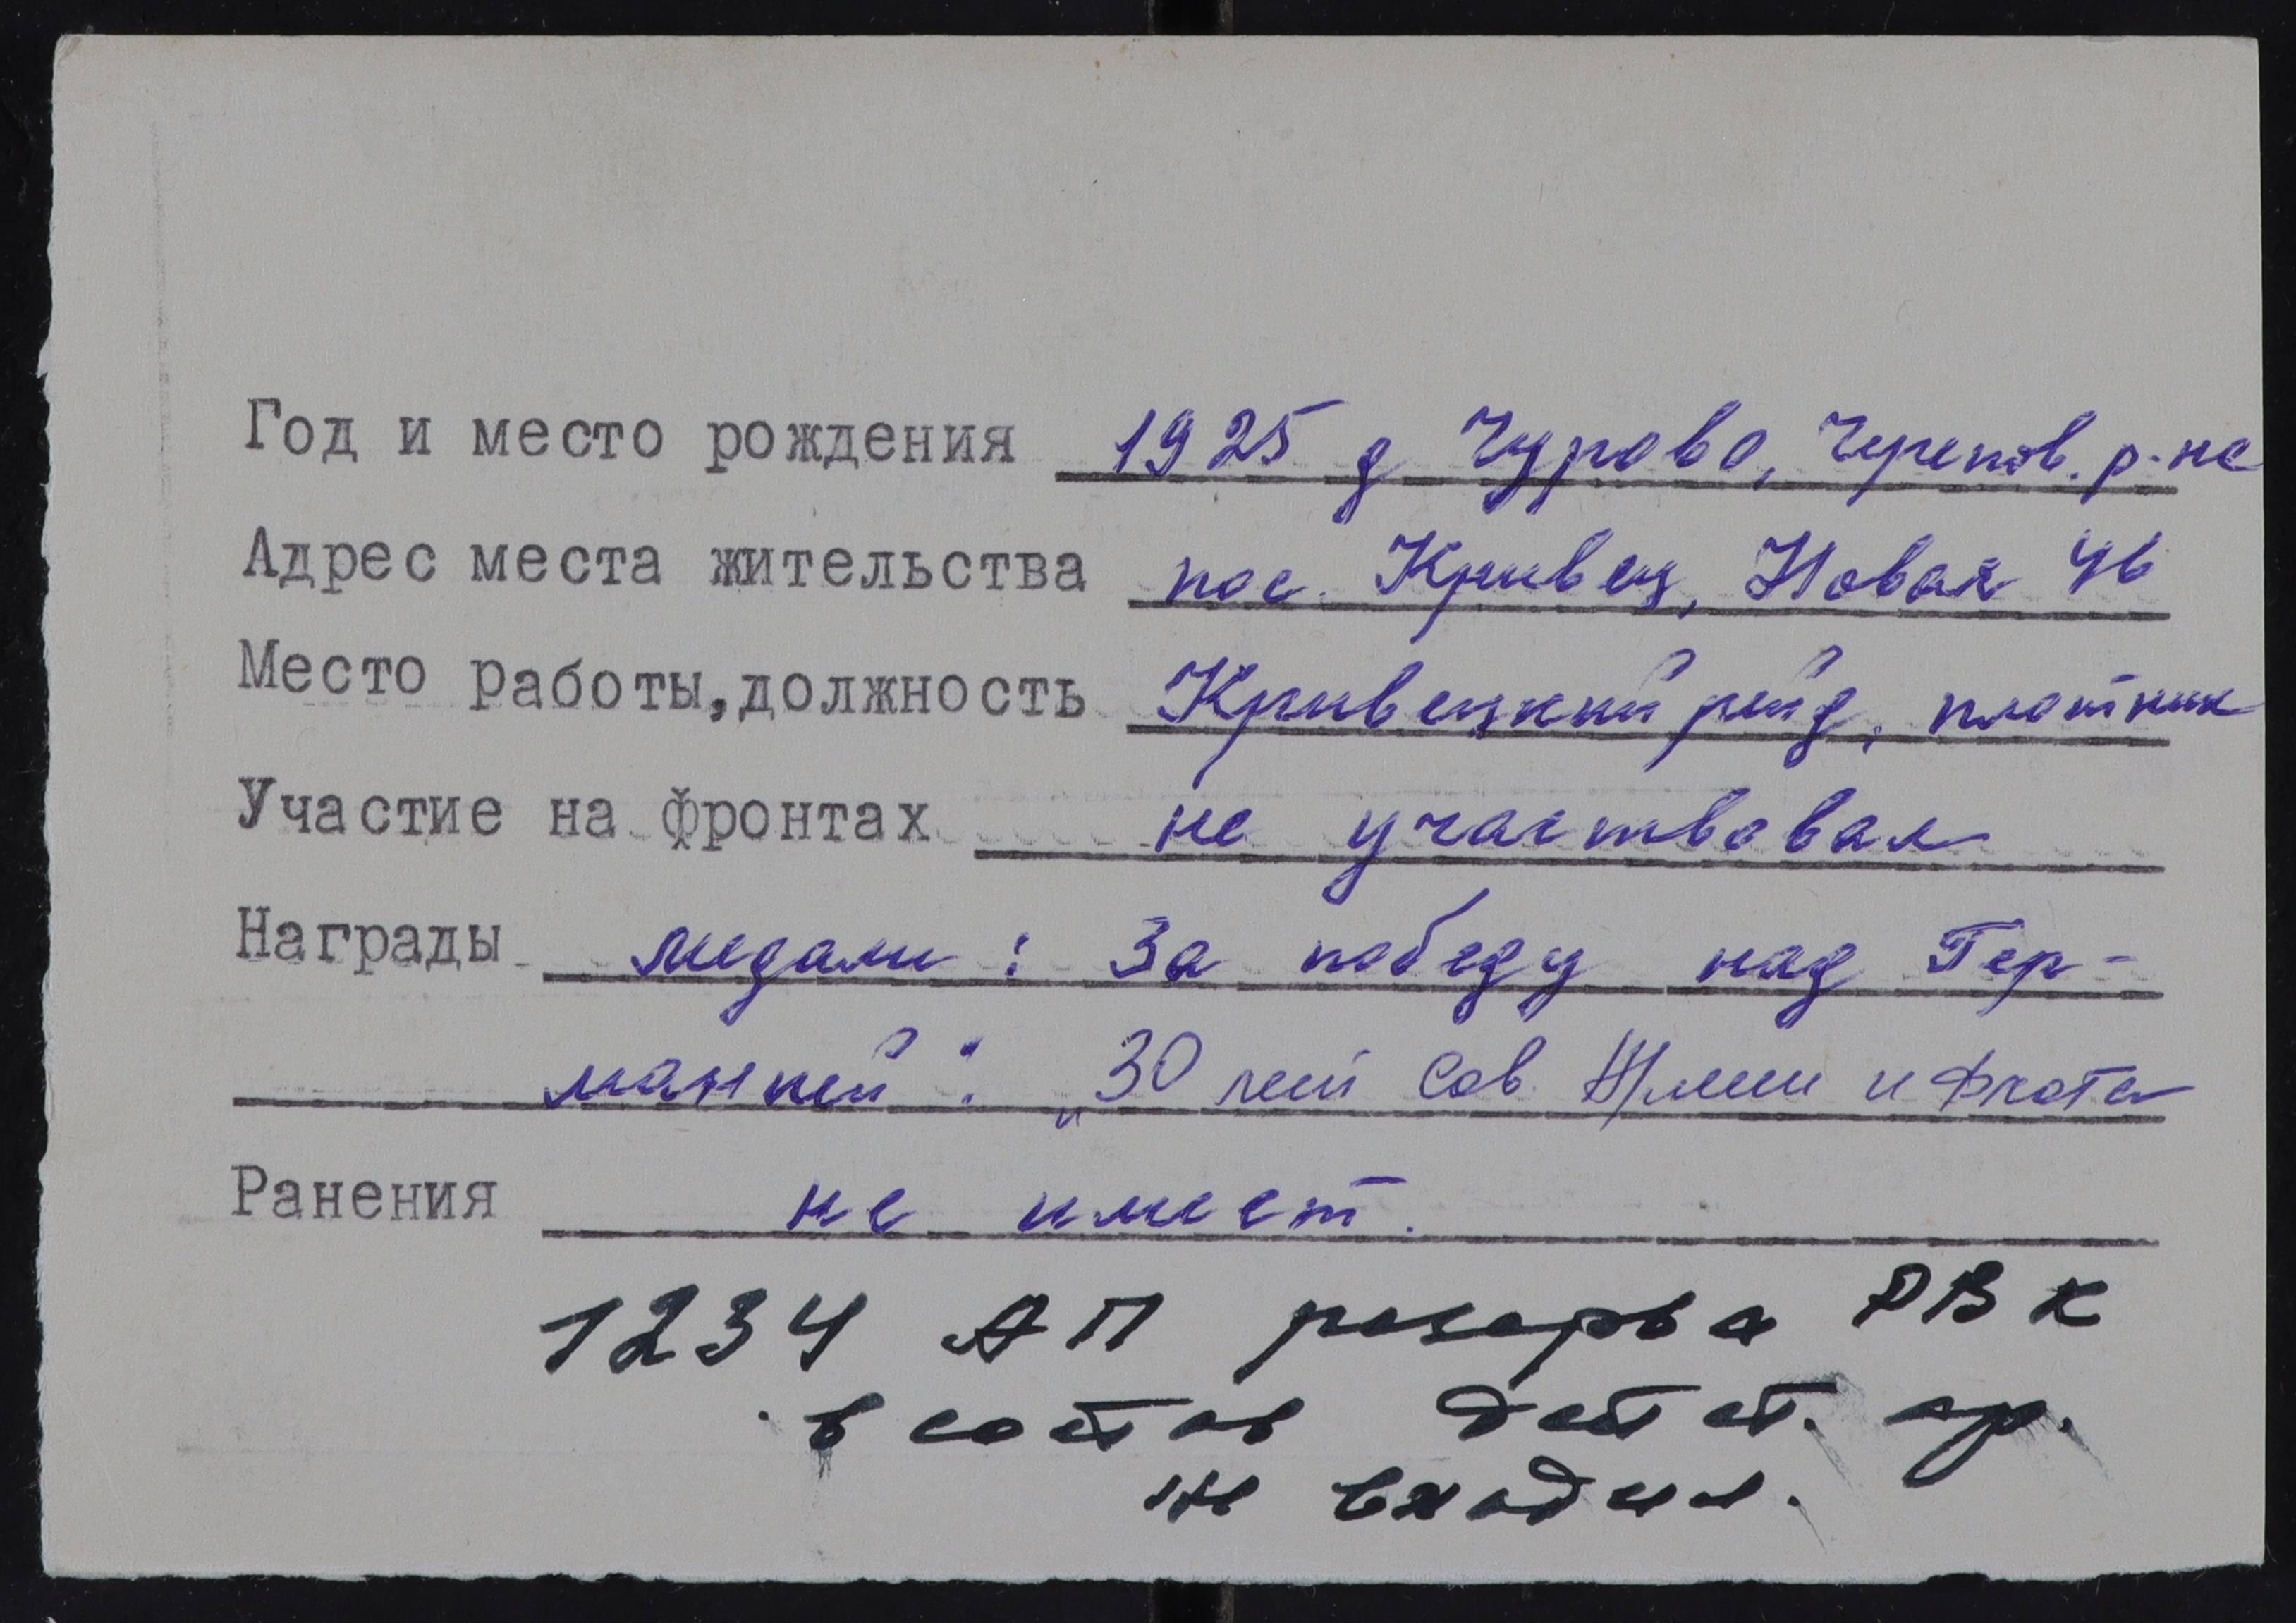 Год и место рождения 1925 д Чурово, Черепов. р-на
Адрес места жительства пос. Кривец, Новая 4б
Место работы, должность Кривецкий рейд, плотник
Участие на фронтах не участвовал
Награды медали: За победу над Гер-
манией": „30 лет Сов. Армии и Флота
Ранения не имеет.
1234 АП резерва РВК
в состав действ. ар.
не входил.